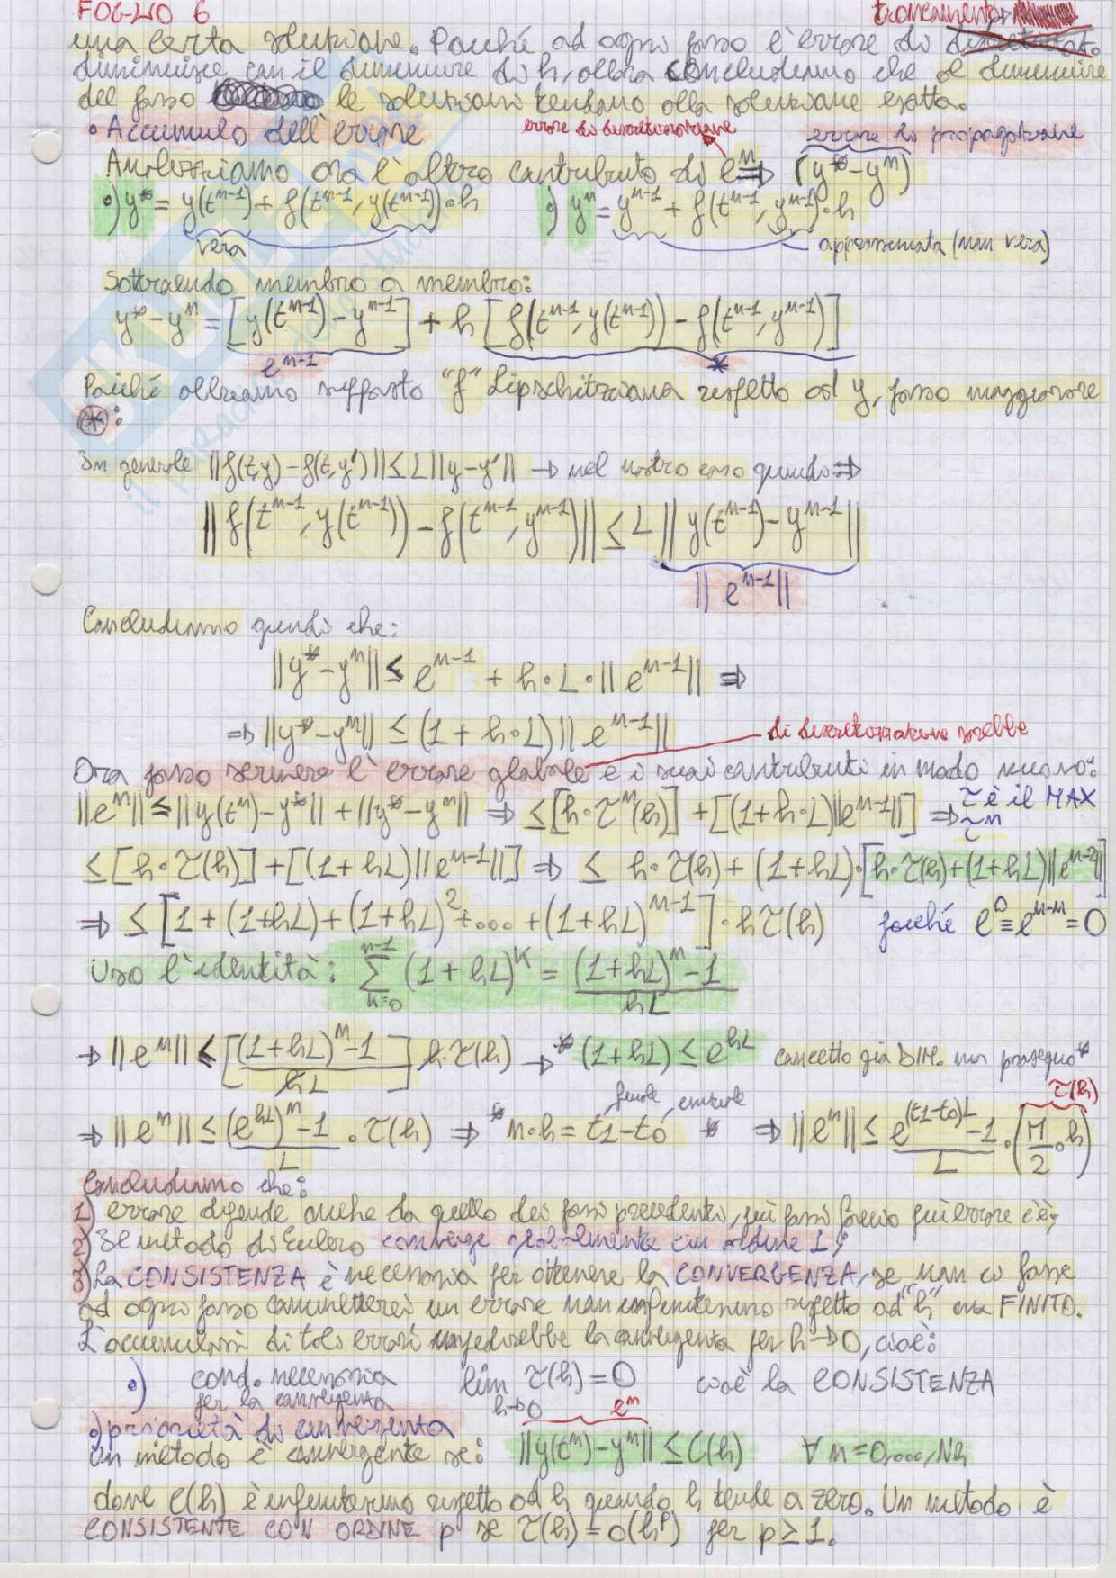 FOGLIO 6
troncamento
una certa soluzione. Poiché ad ogni passo l'errore di
diminuisce con il diminuire di h, allora concludiamo che al diminuire
del passo le soluzioni tendono alla soluzione esatta.
• Accumulo dell'errore
errore di discretizzazione
errore di propagazione
Analizziamo ora l'altro contributo di eⁿ ⇒ (y* - yⁿ)
•) y* = y(tⁿ⁻¹) + f(tⁿ⁻¹, y(tⁿ⁻¹))·h •) yⁿ = yⁿ⁻¹ + f(tⁿ⁻¹, yⁿ⁻¹)·h
vera approssimata (non vera)
Sottraendo membro a membro:
y* - yⁿ = [y(tⁿ⁻¹) - yⁿ⁻¹] + h [f(tⁿ⁻¹, y(tⁿ⁻¹)) - f(tⁿ⁻¹, yⁿ⁻¹)]
eⁿ⁻¹ *
Poiché abbiamo supposto "f" Lipschitziana rispetto ad y, posso maggiorare
(*):
In generale ||f(t,y) - f(t,y')|| ≤ L||y - y'|| → nel nostro caso quindi ⇒
||f(tⁿ⁻¹, y(tⁿ⁻¹)) - f(tⁿ⁻¹, yⁿ⁻¹)|| ≤ L ||y(tⁿ⁻¹) - yⁿ⁻¹||
||eⁿ⁻¹||
Concludiamo quindi che:
||y* - yⁿ|| ≤ eⁿ⁻¹ + h·L·||eⁿ⁻¹|| ⇒
⇒ ||y* - yⁿ|| ≤ (1 + h·L)||eⁿ⁻¹||
di discretizzazione sarebbe
Ora posso scrivere l'errore globale e i suoi contributi in modo nuovo:
||eⁿ|| ≤ ||y(tⁿ) - y*|| + ||y* - yⁿ|| ⇒ ≤ [h·τⁿ(h)] + [(1+h·L)||eⁿ⁻¹||] ⇒ τ è il MAX
τⁿ
≤ [h·τ(h)] + [(1+hL)||eⁿ⁻¹||] ⇒ ≤ h·τ(h) + (1+hL)·[h·τ(h)+(1+hL)||eⁿ⁻²||]
⇒ ≤ [1 + (1+hL) + (1+hL)² + ... + (1+hL)ⁿ⁻¹]·hτ(h) poiché e⁰ ≡ eⁿ⁻ⁿ = 0
Uso l'identità: ∑ₖ₌₀ⁿ⁻¹ (1+hL)ᴷ = ((1+hL)ⁿ - 1)/hL
⇒ ||eⁿ|| ≤ [((1+hL)ⁿ - 1)/hL] h·τ(h) → * (1+hL) ≤ eʰᴸ concetto già DIM. ora proseguo*
finale, iniziale τ(h)
⇒ ||eⁿ|| ≤ ((eʰᴸ)ⁿ - 1)/L · τ(h) ⇒ * n·h = t1-t0 * ⇒ ||eⁿ|| ≤ (e^((t1-t0)L) - 1)/L · (M/2 · h)
Concludiamo che:
1) errore dipende anche da quello dei passi precedenti, più passi faccio più errore c'è;
2) Il metodo di Eulero converge globalmente con ordine 1;
3) La CONSISTENZA è necessaria per ottenere la CONVERGENZA, se non ci fosse
ad ogni passo commetterei un errore non infinitesimo rispetto ad "h" ma FINITO.
L'accumularsi di tali errori impedirebbe la convergenza per h→0, cioè:
•) cond. necessaria lim τ(h) = 0 cioè la CONSISTENZA
per la convergenza h→0
eⁿ
•) proprietà di convergenza
Un metodo è convergente se: ||y(tⁿ) - yⁿ|| ≤ C(h) ∀ n = 0,...,Nh
dove C(h) è infinitesimo rispetto ad h quando h tende a zero. Un metodo è
CONSISTENTE CON ORDINE p se τ(h) = o(hᵖ) per p ≥ 1.